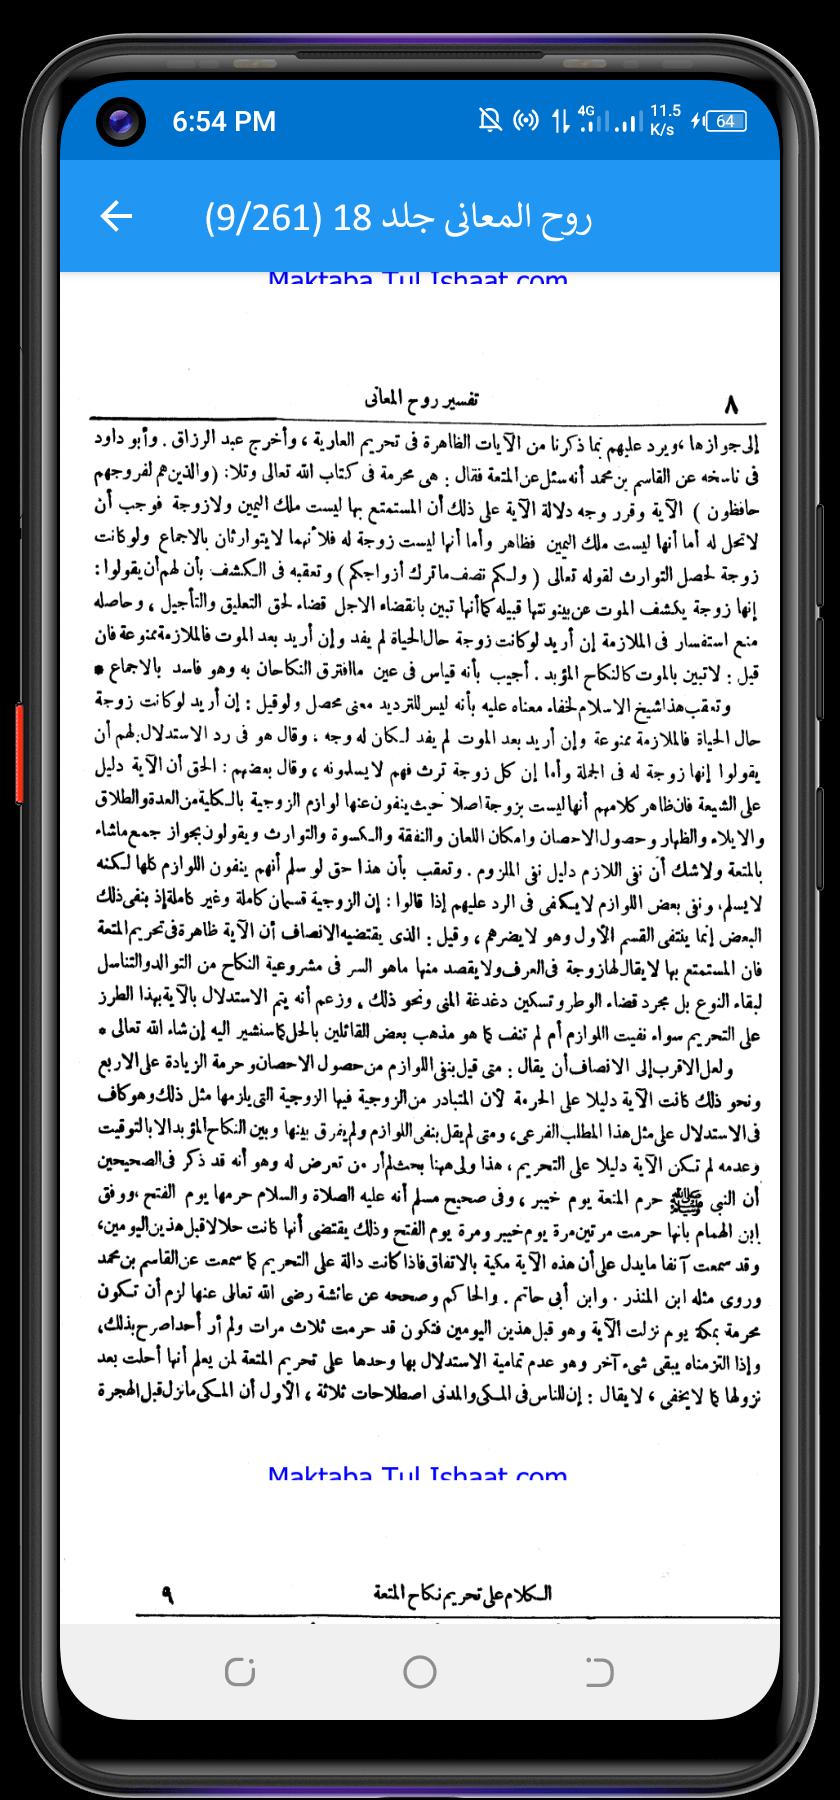 6:54 PM
4G
11.5
K/s
64
روح المعانی جلد 18 (9/261)
Maktaba Tul Ishaat.com
تفسير روح المعانى
٨
إلى جوازها ،ويرد عليهم بما ذكرنا من الآيات الظاهرة فى تحريم العارية ، وأخرج عبد الرزاق . وأبو داود
فى ناسخه عن القاسم بن محمد أنه سئل عن المتعة فقال : هى محرمة فى كتاب الله تعالى وتلا: (والذين هم لفروجهم
حافظون ) الآية وقرر وجه دلالة الآية على ذلك أن المستمتع بها ليست ملك اليمين ولا زوجة فوجب أن
لاتحل له أما أنها ليست ملك اليمين فظاهر وأما أنها ليست زوجة له فلأنهما لايتوارثان بالاجماع ولو كانت
زوجة لحصل التوارث لقوله تعالى ( ولكم نصف ماترك أزواجكم ) وتعقبه فى الكشف بأن لهم أن يقولوا :
إنها زوجة يكشف الموت عن بينونتها قبيله كما أنها تبين بانقضاء الاجل قضاء لحق التعليق والتأجيل ، وحاصله
منع استفسار فى الملازمة إن أريد لو كانت زوجة حال الحياة لم يفد وإن أريد بعد الموت فالملازمة ممنوعة فان
قيل : لاتبين بالموت كالنكاح المؤبد . أجيب بأنه قياس فى عين ماافترق النكاحان به وهو فاسد بالاجماع *
وتعقب هذا شيخ الاسلام لخفاء معناه عليه بأنه ليس للترديد معنى محصل ولو قيل : إن أريد لو كانت زوجة
حال الحياة فالملازمة ممنوعة وإن أريد بعد الموت لم يفد لكان له وجه ، وقال هو فى رد الاستدلال: لهم أن
يقولوا إنها زوجة له فى الجملة وأما إن كل زوجة ترث فهم لايسلمونه ، وقال بعضهم : الحق أن الآية دليل
على الشيعة فان ظاهر كلامهم أنها ليست بزوجة أصلا حيث ينفون عنها لوازم الزوجية بالكلية من العدة والطلاق
والايلاء والظهار وحصول الاحصان وامكان اللعان والنفقة والكسوة والتوارث ويقولون بجواز جمع ماشاء
بالمتعة ولاشك أن نفى اللازم دليل نفى الملزوم . وتعقب بأن هذا حق لو سلم أنهم ينفون اللوازم كلها لكنه
لايسلم، ونفى بعض اللوازم لايكفى فى الرد عليهم إذا قالوا : إن الزوجية قسمان كاملة وغير كاملة إذ بنفى ذلك
البعض إنما ينتفى القسم الأول وهو لايضرهم ، وقيل : الذى يقتضيه الانصاف أن الآية ظاهرة فى تحريم المتعة
فان المستمتع بها لا يقال لها زوجة فى العرف ولا يقصد منها ماهو السر فى مشروعية النكاح من التوالد والتناسل
لبقاء النوع بل مجرد قضاء الوطر وتسكين دغدغة المنى ونحو ذلك ، وزعم أنه يتم الاستدلال بالآية بهذا الطرز
على التحريم سواء نفيت اللوازم أم لم تنف كما هو مذهب بعض القائلين بالحل كما سنشير اليه إن شاء الله تعالى *
ولعل الاقرب إلى الانصاف أن يقال : متى قيل بنفى اللوازم من حصول الاحصان وحرمة الزيادة على الاربع
ونحو ذلك كانت الآية دليلا على الحرمة لأن المتبادر من الزوجية فيها الزوجية التى يلزمها مثل ذلك وهو كاف
فى الاستدلال على مثل هذا المطلب الفرعى، ومتى لم يقل بنفى اللوازم ولم يفرق بينها وبين النكاح المؤبد الا بالتوقيت
وعدمه لم تكن الآية دليلا على التحريم ، هذا ولى ههنا بحث لم أر من تعرض له وهو أنه قد ذكر فى الصحيحين
أن النبى ﷺ حرم المتعة يوم خيبر ، وفى صحيح مسلم أنه عليه الصلاة والسلام حرمها يوم الفتح ،ووفق
ابن الهمام بانها حرمت مرتين مرة يوم خيبر ومرة يوم الفتح وذلك يقتضى أنها كانت حلالا قبل هذين اليومين،
وقد سمعت آنفا مايدل على أن هذه الآية مكية بالاتفاق فاذا كانت دالة على التحريم كما سمعت عن القاسم بن محمد
وروى مثله ابن المنذر . وابن أبى حاتم . والحاكم وصححه عن عائشة رضى الله تعالى عنها لزم أن تكون
محرمة بمكة يوم نزلت الآية وهو قبل هذين اليومين فتكون قد حرمت ثلاث مرات ولم أر أحدا صرح بذلك،
وإذا التزمناه يبقى شىء آخر وهو عدم تمامية الاستدلال بها وحدها على تحريم المتعة لمن يعلم أنها أحلت بعد
نزولها كما لا يخفى ، لا يقال : إن للناس فى المكى والمدنى اصطلاحات ثلاثة ، الأول أن المكى مانزل قبل الهجرة
Maktaba Tul Ishaat.com
الكلام على تحريم نكاح المتعة
٩